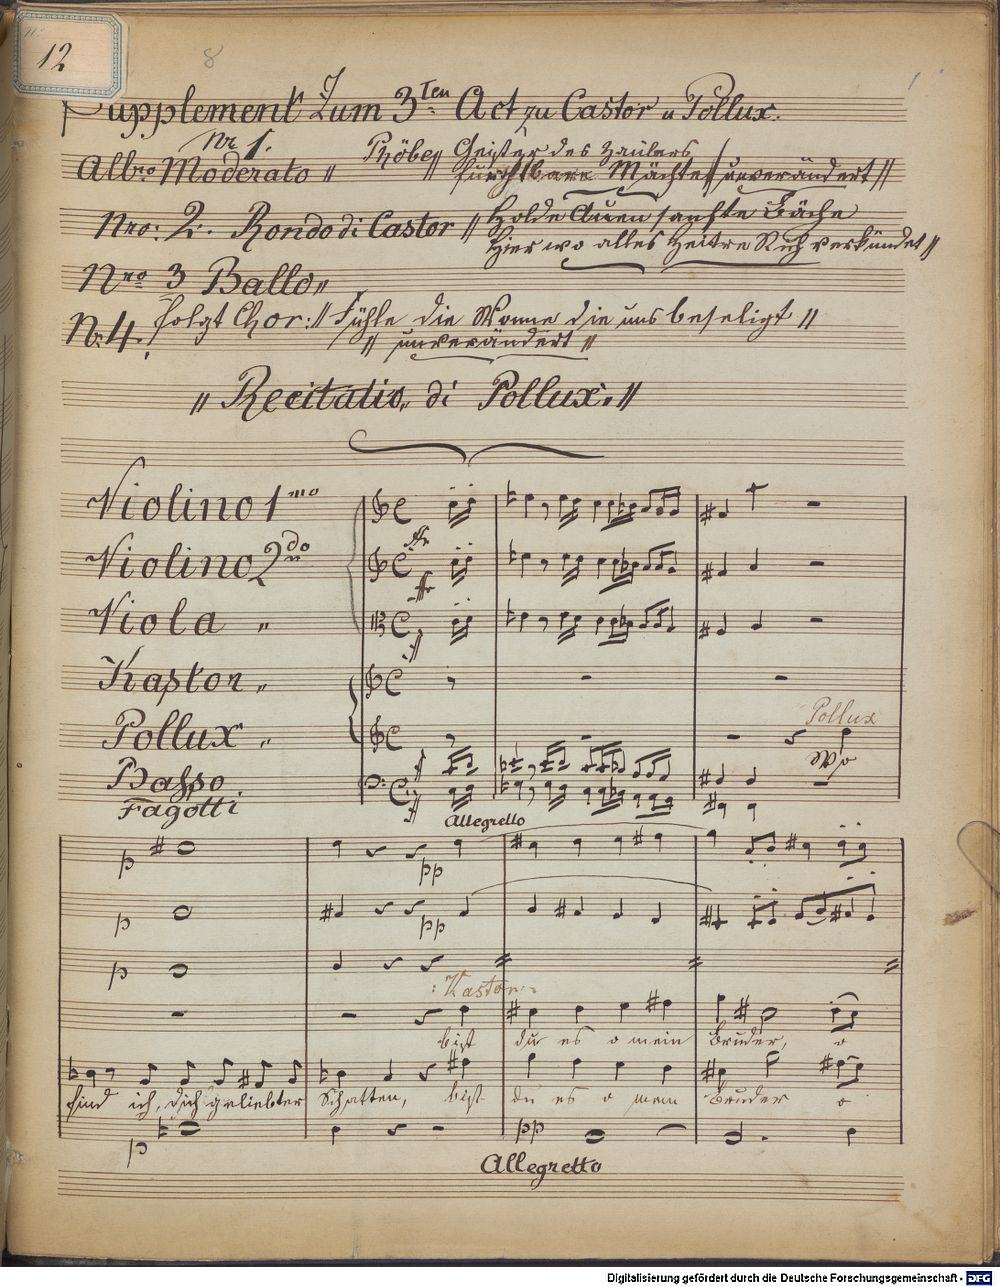 12
8
1
Supplement Zum 3ten Act zu Castor u Pollux.
Nr. 1.
Allgro Moderato // Phöbe // Geister des Zaubers
furchtbare Mächte // unverändert //
Nro: 2. Rondo di Castor // Holde Auen sanfte Bäche
Hier wo alles heitre Ruh verkündet //
Nro 3 Ballo //
Nr. 4. folgt Chor: // Fühle die Wonne die uns beseligt //
// unverändert //
// Recitativ di Pollux. //
Violino 1mo
Violino 2do
ff
Viola "
ff
Kastor "
Pollux "
Pollux
Wo
Basso
Fagotti
ff
Allegretto
p
pp
p
pp
p
: Kastor :
bist du es o mein Bruder, o
find ich, dich geliebter Schatten, bist du es o mein Bruder o
p
pp
Allegretto
Digitalisierung gefördert durch die Deutsche Forschungsgemeinschaft - DFG